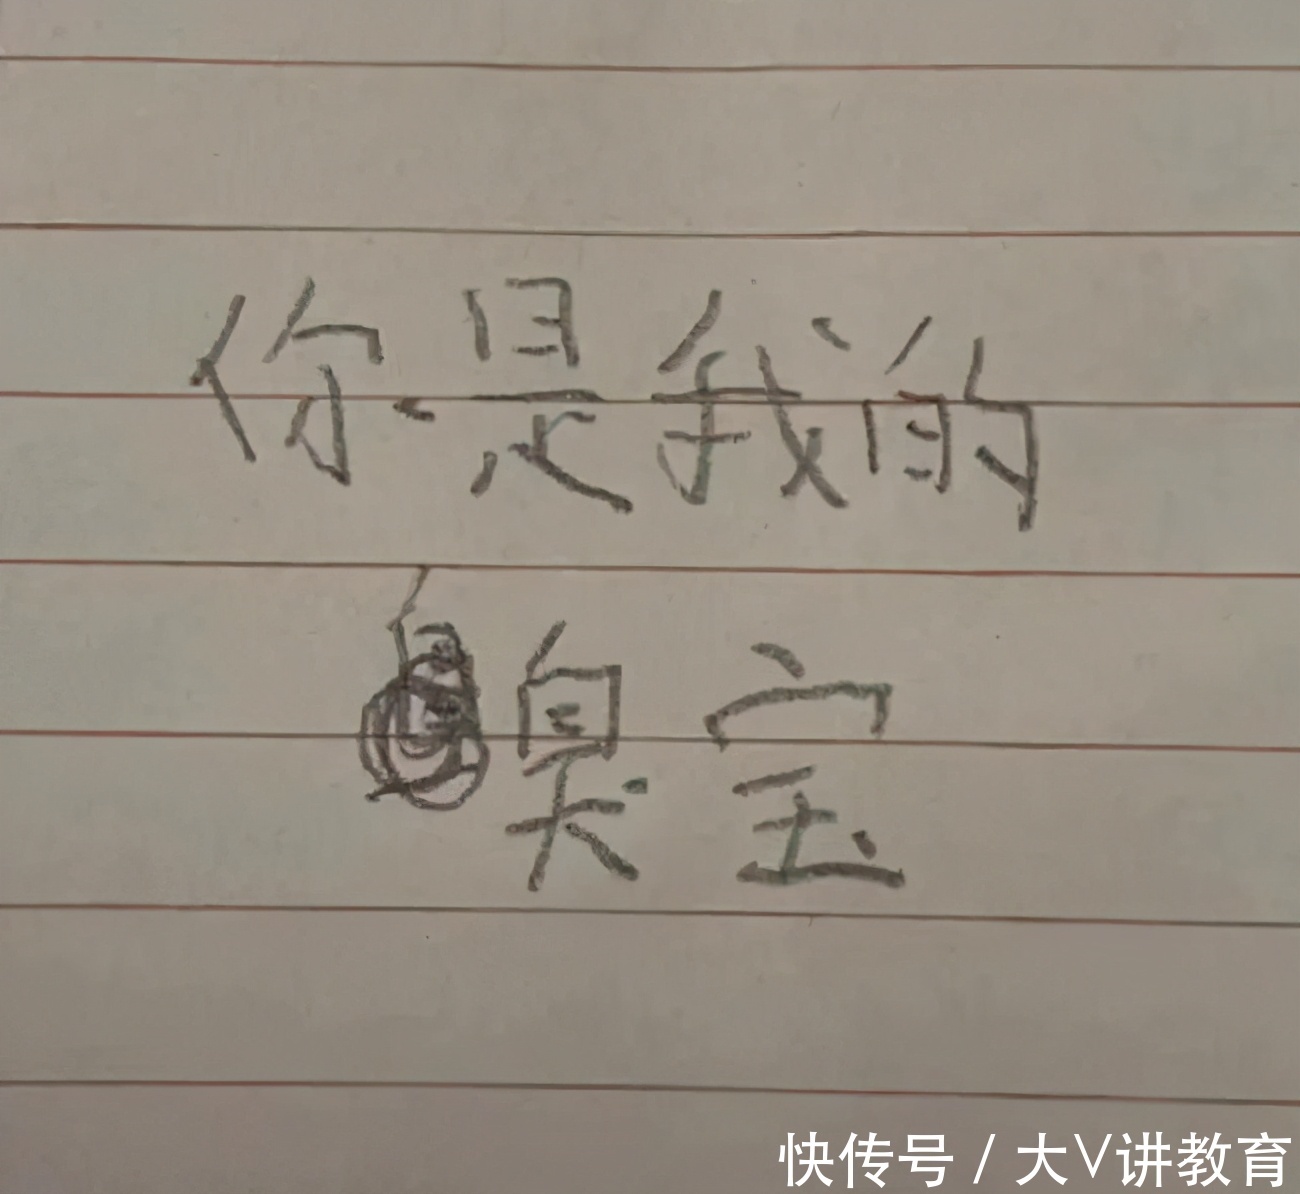 你是我的
臭宝
快传号 / 大V讲教育